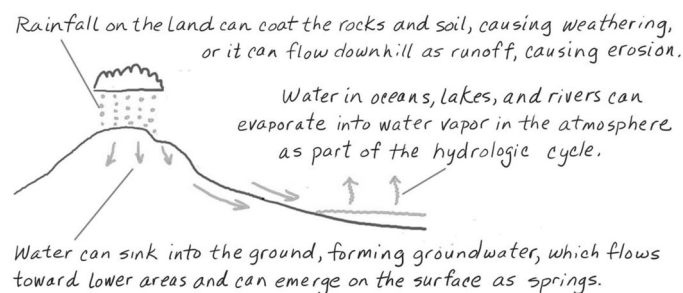 Rainfall on the land can coat the rocks and soil, causing weathering,
or it can flow downhill as runoff, causing erosion.
Water in oceans, lakes, and rivers can
evaporate into water vapor in the atmosphere
as part of the hydrologic cycle.
Water can sink into the ground, forming groundwater, which flows
toward lower areas and can emerge on the surface as springs.